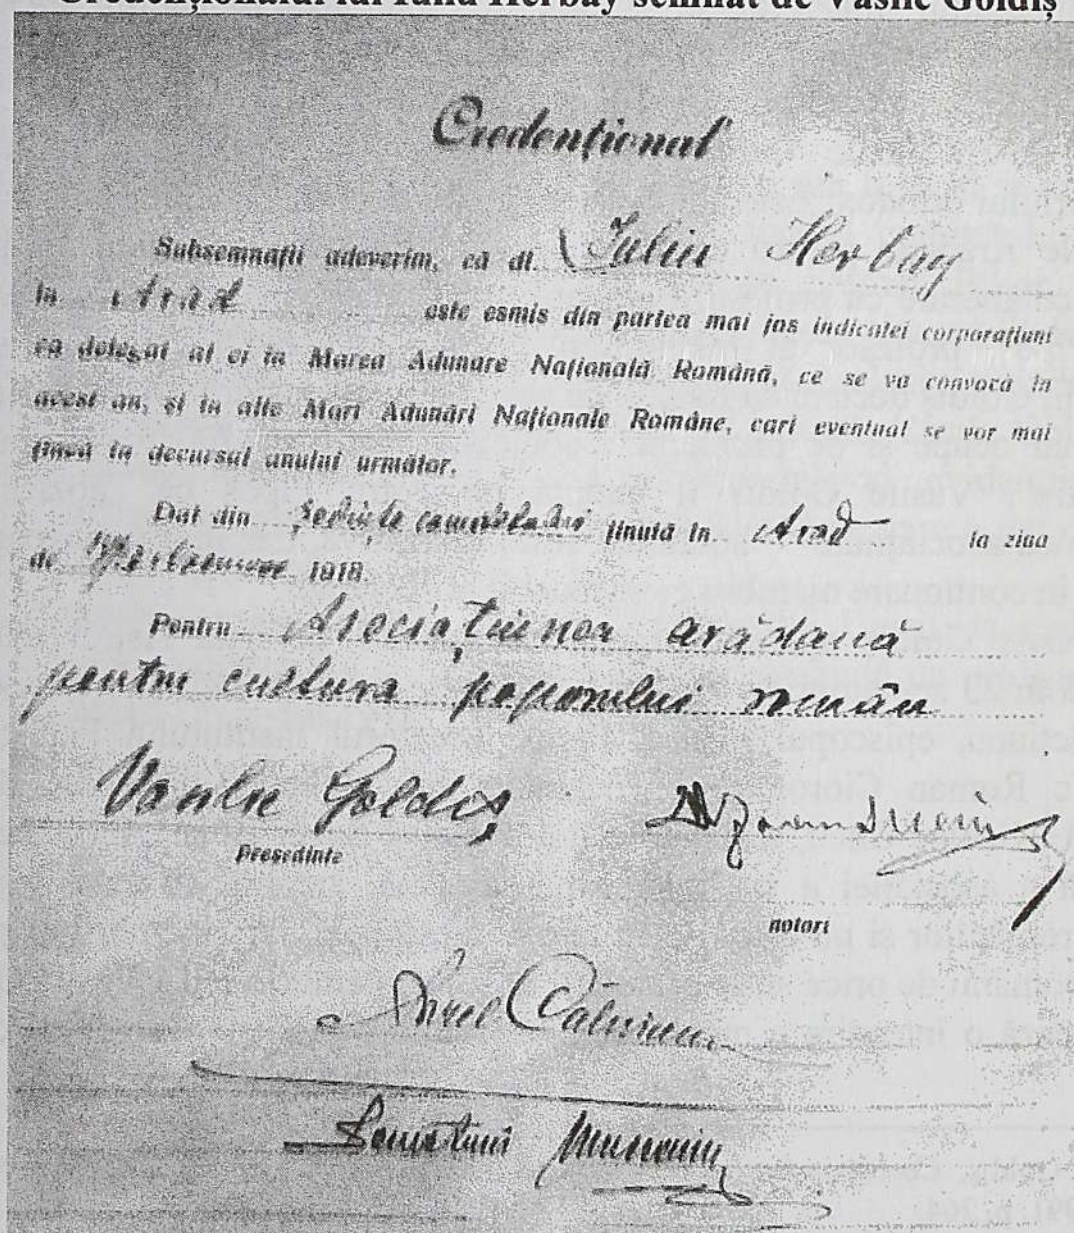 Credenționalul lui Iuliu Herbay semnat de Vasile Goldiș
Credențional
Subsemnații adeverim, că dl. Iuliu Herbay
în Arad este esmis din partea mai jos indicatei corporațiuni
ca delegat al ei în Marea Adunare Națională Română, ce se va convocă în
acest an, și în alte Mari Adunări Naționale Române, cari eventual se vor mai
ținea în decursul anului următor.
Dat din ședința comitetului ținută în Arad la ziua
de Noiembre 1918.
Pentru Asociațiunea arădană
pentru cultura poporului român
Vasile Goldiș
președinte
notari